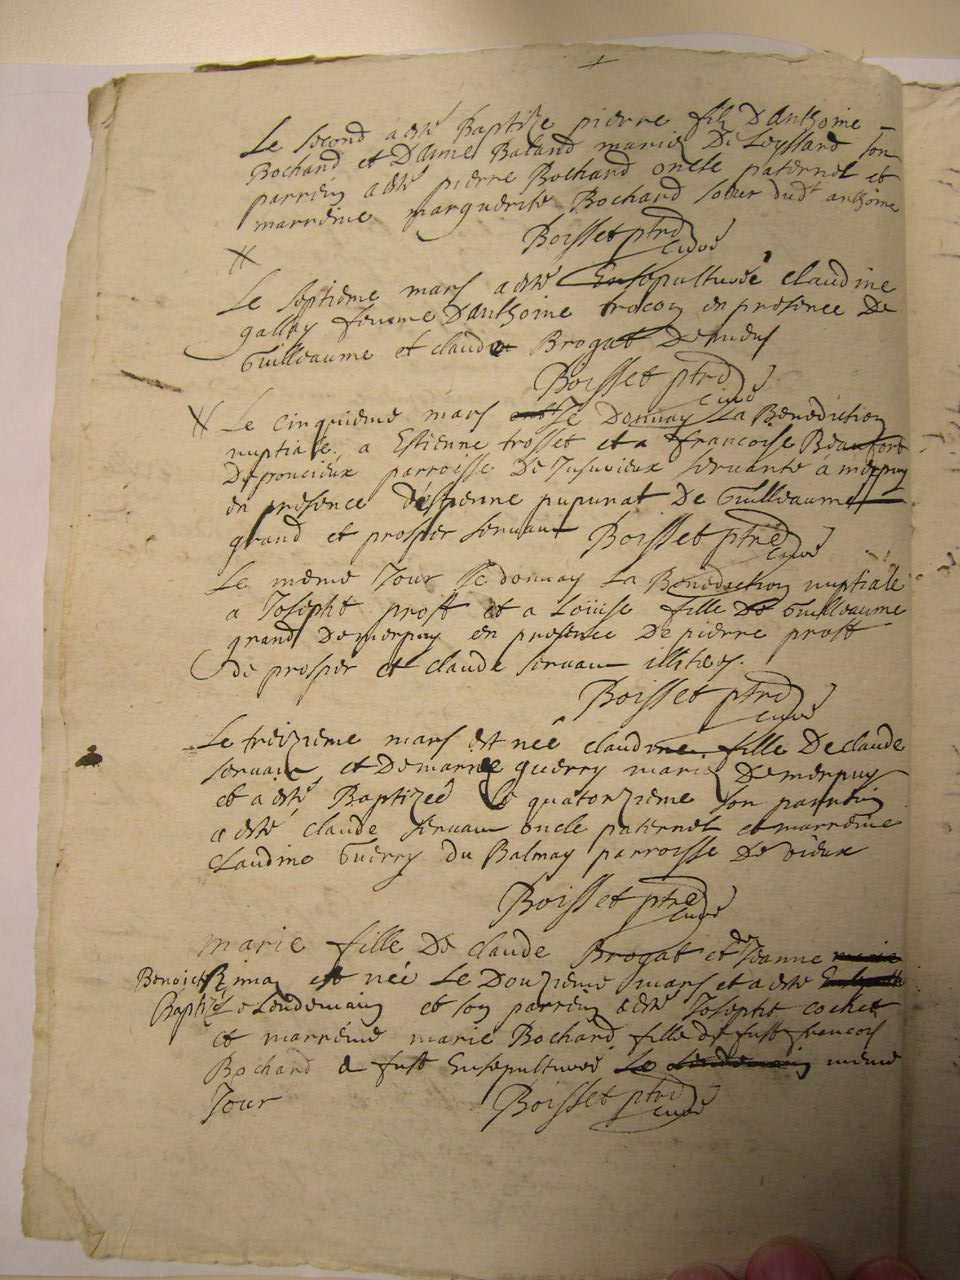 Le second a esté Baptize pierre filz D'anthoine
Bochard et D'aime Baland mariés De Leyssard son
parrein a esté pierre Bochard oncle paternel et
marreine marguerite Bochard soeur dudt anthoine
Boisset ptre
curé
Le septieme mars a esté Ensepulturée claudine
gallay femme D'anthoine trocon en presence De
Guilleaume et claude Brogat
Boisset ptre
curé
Le cinquieme mars Je Donnay La Benediction
nuptiale a Estienne trosset et a francoise Beaufort
De poncieux parroisse De Jusurieux servante a merpuy
en presence d'estienne pupunat De Guilleaume
grand et prosper servan Boisset ptre
curé
Le meme Jour Je donnay La Benediction nuptiale
a Joseph prost et a Loüise fille De Guilleaume
grand De merpuy en presence De pierre prost
De prosper et claude servan illiteés.
Boisset ptre
curé
Le treizieme mars est née claudine fille De claude
servan et De marie guerry mariés De merpuy
et a esté Baptizée Le quatorzieme son parrein
a esté claude servan oncle paternel et marreine
claudine Guerry du Balmay parroisse De vieux
Boisset ptre
curé
marie fille De claude Brogat et de Jeanne
Benoict est née Le Douzieme mars et a esté
Baptizé Le Lendemain et son parrein a esté Joseph cochet
et marreine marie Bochard fille de fust francois
Bochard & fust Ensepulturée Le Lendemain meme
Jour Boisset ptre
curé